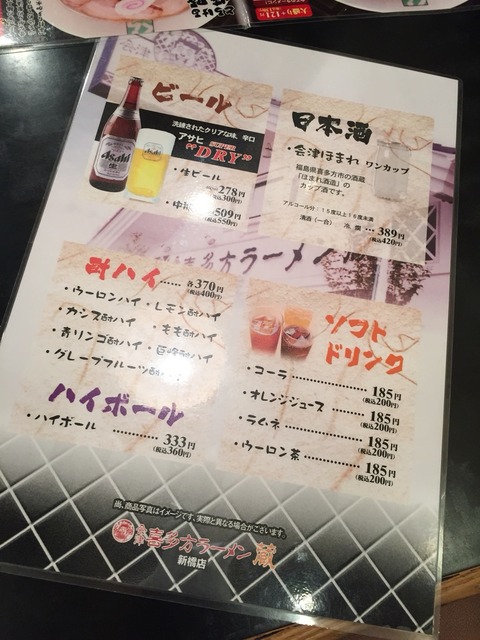 ビール
洗練されたクリアな味、辛口
アサヒ
"SUPER DRY"
Asahi
Asahi
生
・生ビール
278円
(税込300円)
509円
(税込550円)
日本酒
・会津ほまれ ワンカップ
福島県喜多方市の酒蔵
「ほまれ酒造」の
カップ酒です。
アルコール分:15度以上16度未満
清酒(一合) 冷 燗 … 389円
(税込420円)
酎ハイ …… 各370円
(税込400円)
・ウーロンハイ ・レモン酎ハイ
カシス酎ハイ ・もも酎ハイ
・青リンゴ酎ハイ ・巨峰酎ハイ
・グレープフルーツ酎
ハイボール
・ハイボール ……… 333円
(税込360円)
ソフト
ドリンク
・コーラ ……… 185円
(税込200円)
・オレンジジュース …… 185円
(税込200円)
・ラムネ ……… 185円
(税込200円)
・ウーロン茶 ……… 185円
(税込200円)
尚、商品写真はイメージです、実際と異なる場合がございます。
会津 喜多方ラーメン 蔵
新橋店